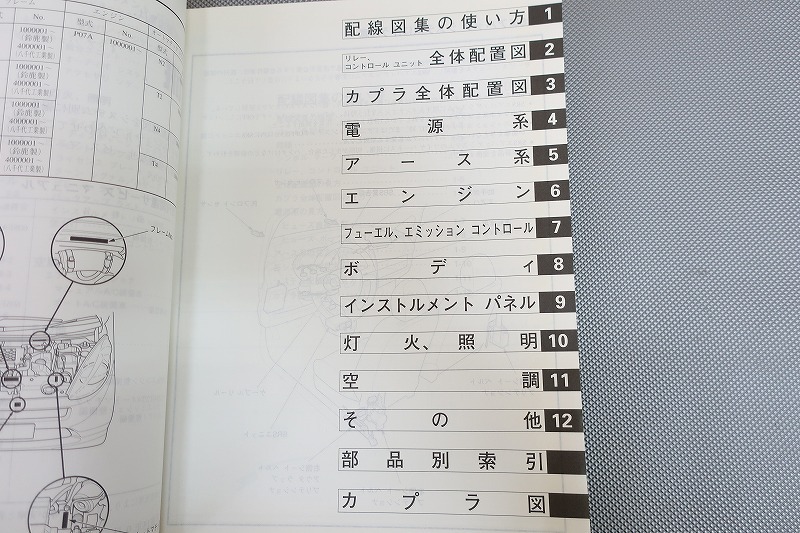 フレーム
エンジン
No.
型式
No.
型式
1000001～
(鈴鹿製)
4000001～
(八千代工業製)
P07A
1000001～
N2
1000001～
(鈴鹿製)
4000001～
(八千代工業製)
T2
1000001～
(鈴鹿製)
4000001～
(八千代工業製)
N4
1000001～
(鈴鹿製)
4000001～
(八千代工業製)
フレームNo.
配線図集の使い方 1
リレー、
コントロール ユニット 全体配置図 2
カプラ全体配置図 3
電源系 4
アース系 5
エンジン 6
フューエル、エミッション コントロール 7
ボディ 8
インストルメント パネル 9
灯火、照明 10
空調 11
その他 12
部品別索引
カプラ図